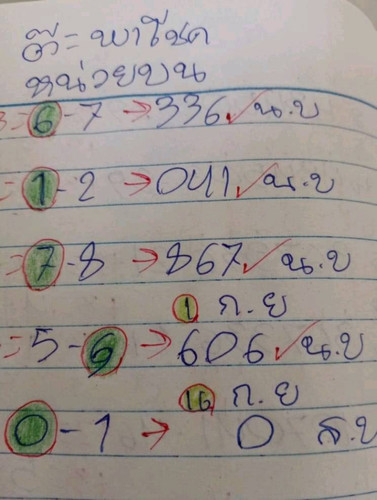 ตี๋= พาโชค
หน่วยบน
3=6-7 → 336 ✓ น.บ
=1-2 → 041 ✓ น.บ
=7-8 → 867 ✓ น.บ
1 ก.ย
=5-6 → 606 ✓ น.บ
16 ก.ย
0-1 → 0 ส.บ